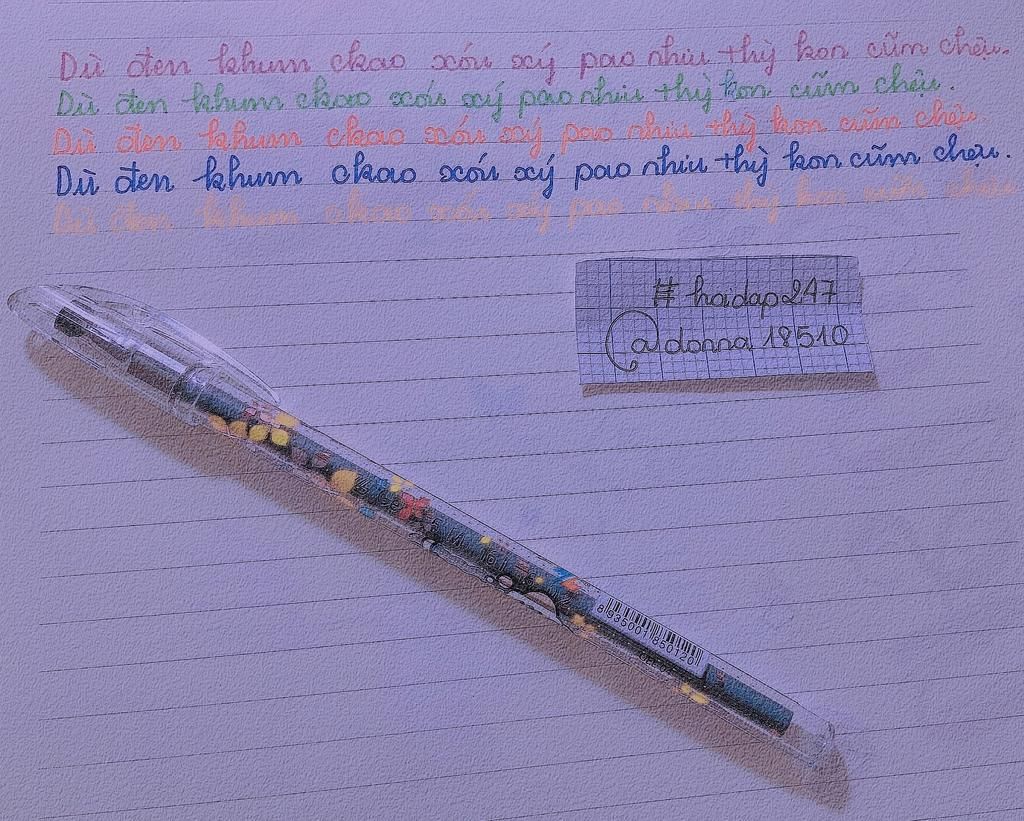 Dù đen khum ckao xóu xý pao nhiu thỳ kon cũm chệu.
Dù đen khum ckao xóu xý pao nhiu thỳ kon cũm chệu.
Dù đen khum ckao xóu xý pao nhiu thỳ kon cũm chệu.
Dù đen khum ckao xóu xý pao nhiu thỳ kon cũm chệu.
Dù đen khum ckao xóu xý pao nhiu thỳ kon cũm chệu.
# hoidap247
@donna18510
8 935001 850120